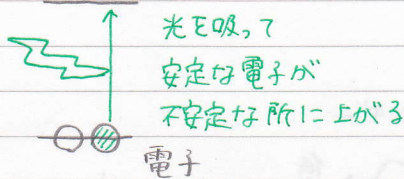 光を吸って
安定な電子が
不安定な所に上がる
電子